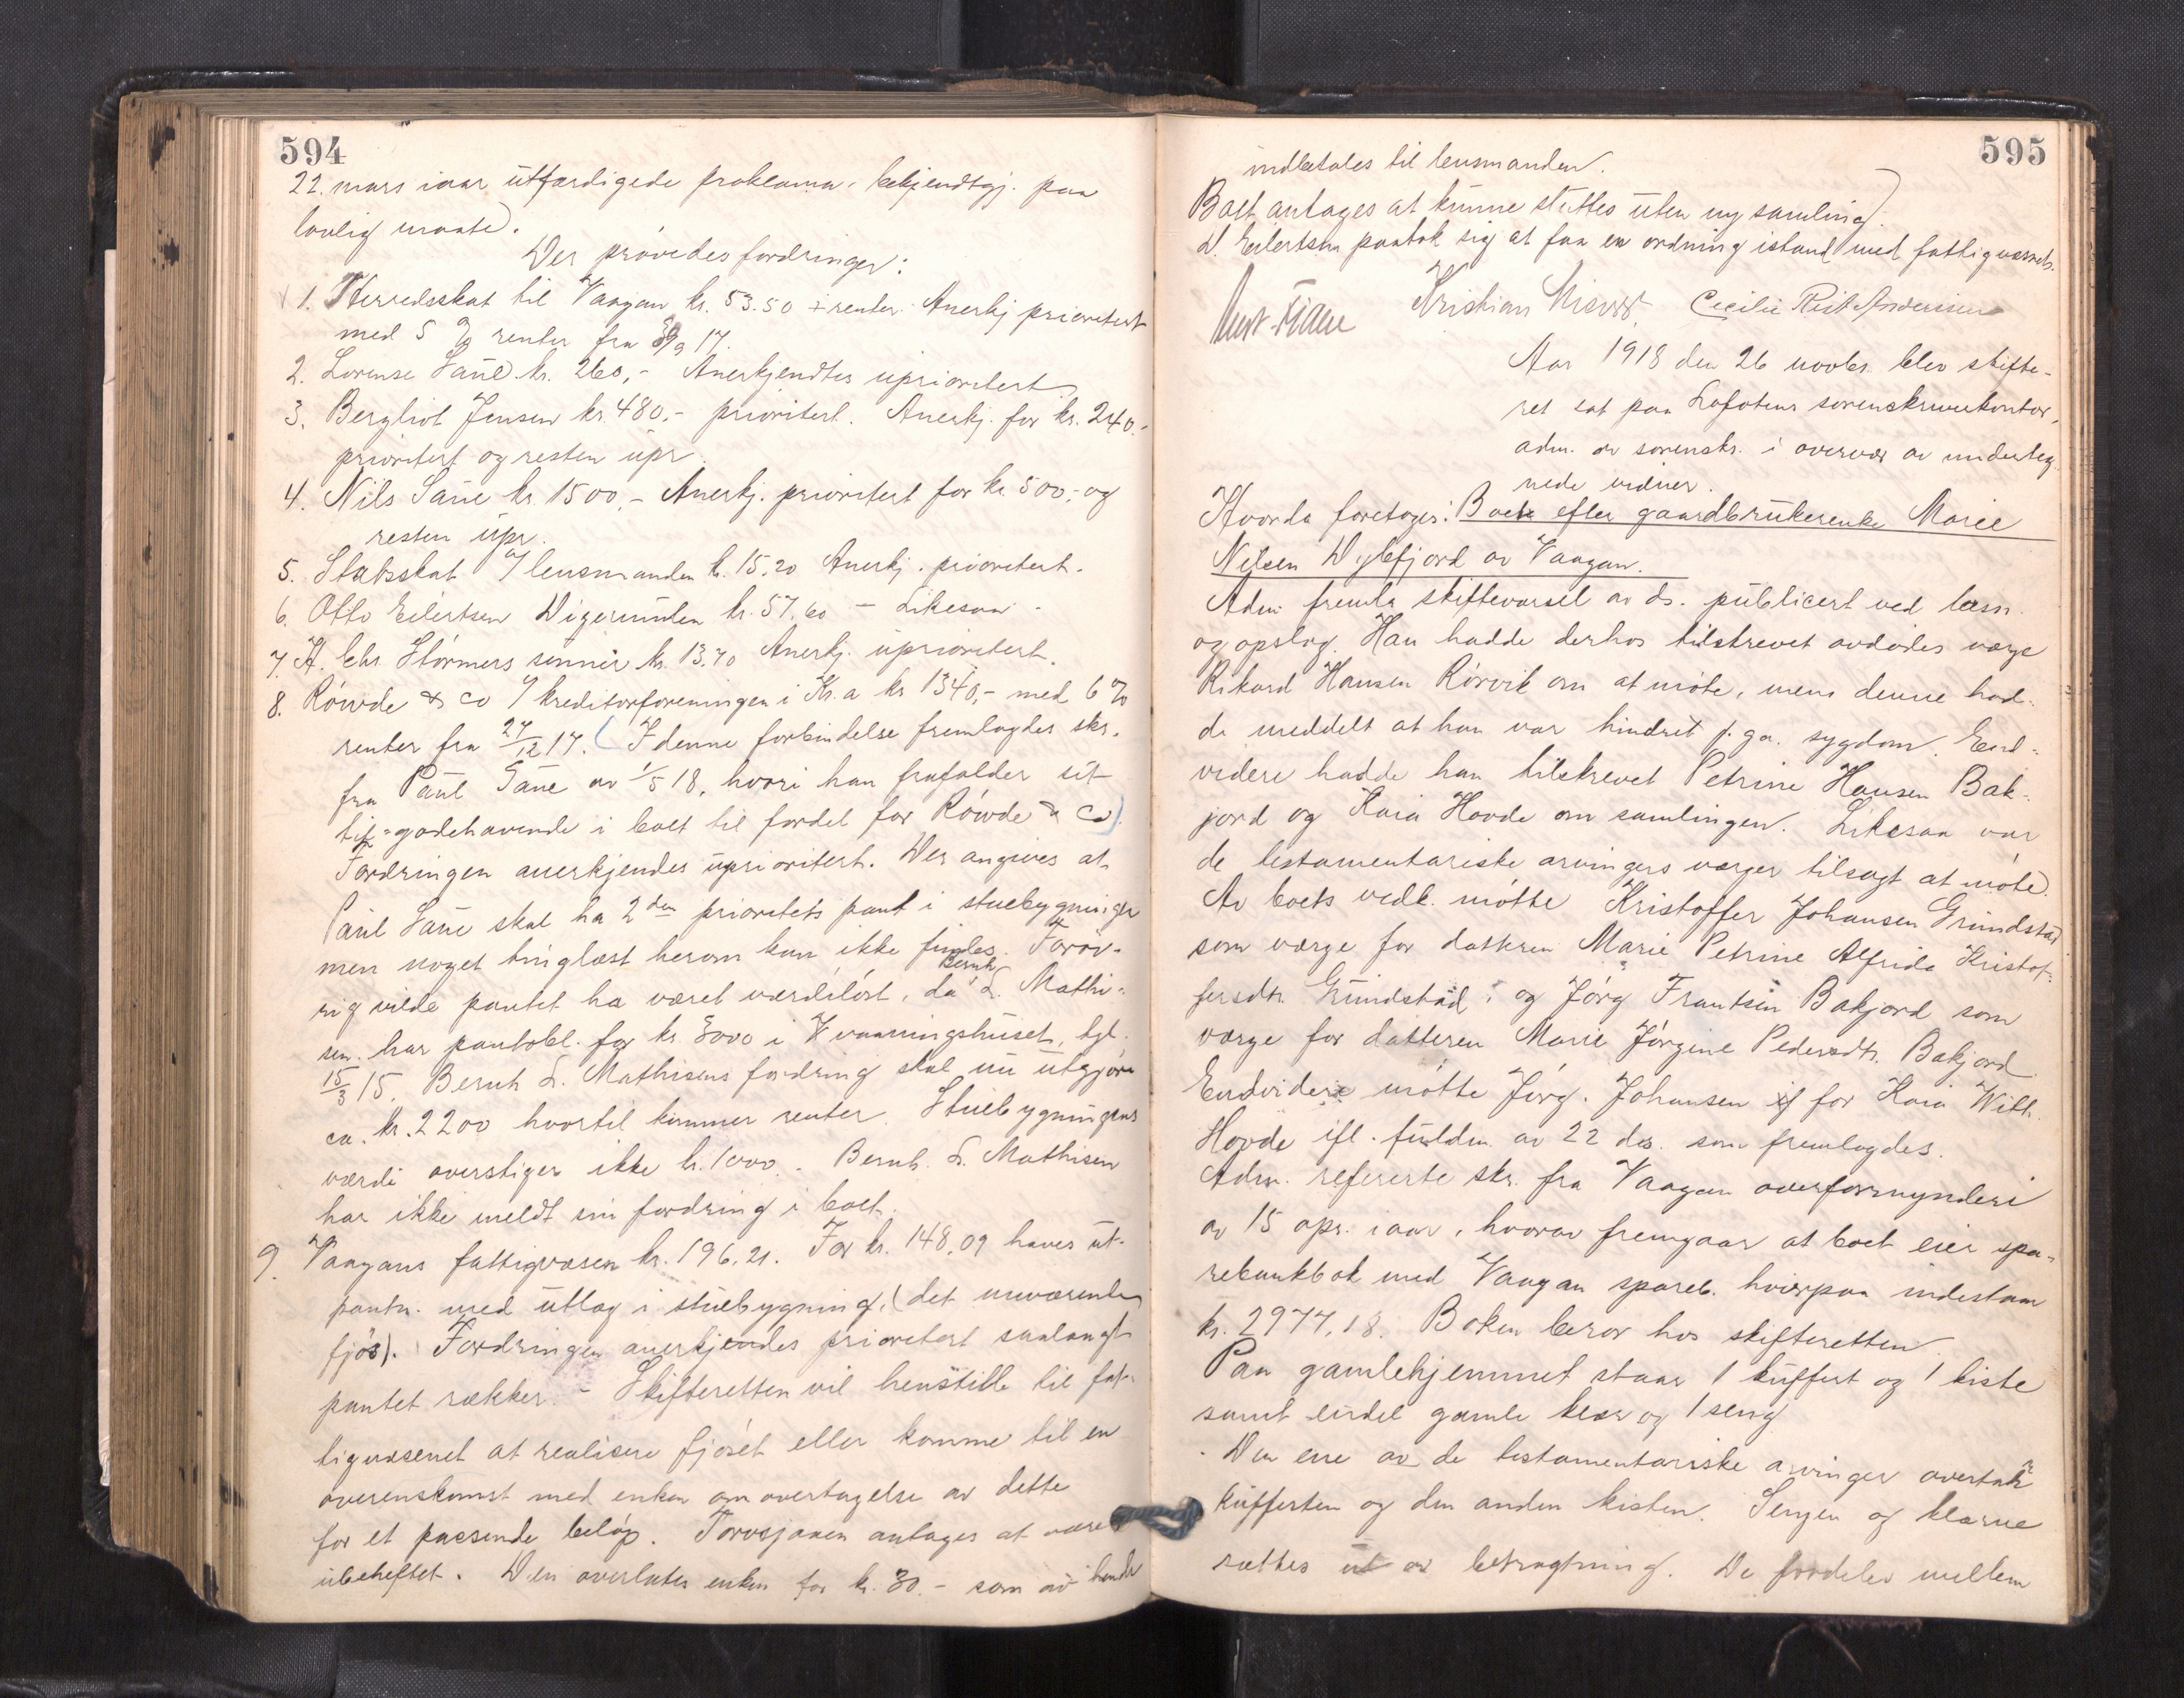 594
22. mars iaar utfærdigede proklama, bekjendtgj. paa
lovlig maate.
Der prövedes fordringer:
1. Herredsskat til Vaagan kr. 53.50 + renter. Anerkj prioritert
med 5 % renter fra 30/9 17.
2. Lorense Saue kr. 260,- Anerkjendtes uprioritert
3. Bergliot Jensen kr. 480.- prioritert. Anerkj. for kr. 240.-
prioritert og resten upr.
4. Nils Saue kr. 1500,- Anerkj. prioritert for kr. 500,- og
resten upr.
5. Statsskat v/ lensmanden kr. 15.20 Anerkj. prioritert.
6. Otto Eilertsen Digermulen kr. 57.60 - Likesaa -
7. H. Chr. Störmers sönner kr. 13.70 Anerkj. uprioritert.
8. Röwde & Co v/ kreditorforeningen i Kr.a kr 1340,- med 6 %
renter fra 27/12 17. (I denne forbindelse fremlagdes skr.
fra Paul Saue av 1/5 18, hvori han frafalder sit
til-godehavende i boet til fordel for Röwde & Co).
Fordringen anerkjendes uprioritert. Der angives at
Paul Saue skal ha 2den prioritets pant i stuebygningen
men noget tinglæst herom kan ikke findes. Foröv-
rig vilde pantet ha været værdilöst, da Bernh. L. Mathi-
sen har pantobl. for kr 3000 i Vaaningshuset, tgl.
15/3 15. Bernh L. Mathisens fordring skal nu utgjöre
ca. kr. 2200 hvortil kommer renter. Stuebygningens
værdi overstiger ikke kr. 1000. - Bernh. L. Mathisen
har ikke meldt sin fordring i boet.
9. Vaagans fattigvæsen kr. 196,21. For kr. 148,09 haves ut-
pantn. med utlæg i stuebygning. (det nuværende
fjös). Fordringen anerkjendes prioritert saalangt
pantet rækker. - Skifteretten vil henstille til fat-
tigvæsenet at realisere fjöset eller komme til en
overenskomst med enken om overtagelse av dette
for et passende belöp. Torvsjaaen antages at være
ubeheftet. Den overlates enken for kr. 30.- som av hende
595
indbetales til lensmanden.
Boet antages at kunne sluttes uten ny samling.
D. Eilertsen paatok sig at faa en ordning istand med fattigvæsenet.
Kristian Cecilie Rist Andersen
Aar 1918 den 26 novbr. blev skifte-
ret sat paa Lofotens sorenskriverkontor,
adm. av sorenskr. i overvær av underteg-
nede vidner.
Hvorda foretoges: Boet efter gaardbrukerenke Marie
Nilsen Dybfjord av Vaagan.
Adm. fremla skiftevarsel av ds. publicert ved læsn.
og opslag. Han hadde derhos tilskrevet avdödes værge
Rikard Hansen Rörvik om at möte, mens denne had-
de meddelt at han var hindret p. ga. sygdom. End-
videre hadde han tilskrevet Petrine Hansen Bak-
jord og Kaia Hovde om samlingen. Likesaa var
de testamentariske arvingers værger tilsagt at möte.
Av boets vedk. mötte Kristoffer Johansen Grundstad
som værge for datteren Marie Petrine Alfrida Kristof-
fersdtr. Grundstad, og Jörg Frantsen Bakjord som
værge for datteren Marie Jörgine Pedersdtr. Bakjord.
Endvidere mötte Jörg. Johansen for Kaia Wilh.
Hovde ifl. fuldm. av 22 ds. som fremlagdes.
Adm. refererte skr. fra Vaagan overformynderi
av 15 apr. iaar, hvorav fremgaar at boet eier spa-
rebankbok med Vaagan spareb. hvorpaa indestaar
kr. 2977,18. Boken beror hos skifteretten.
Paa gamlehjemmet staar 1 kuffert og 1 kiste
samt endel gamle klær og 1 seng
Den ene av de testamentariske arvinger overtar
kufferten og den anden kisten. Sengen og klærne
sættes ut av betragtning. De fordeles mellem